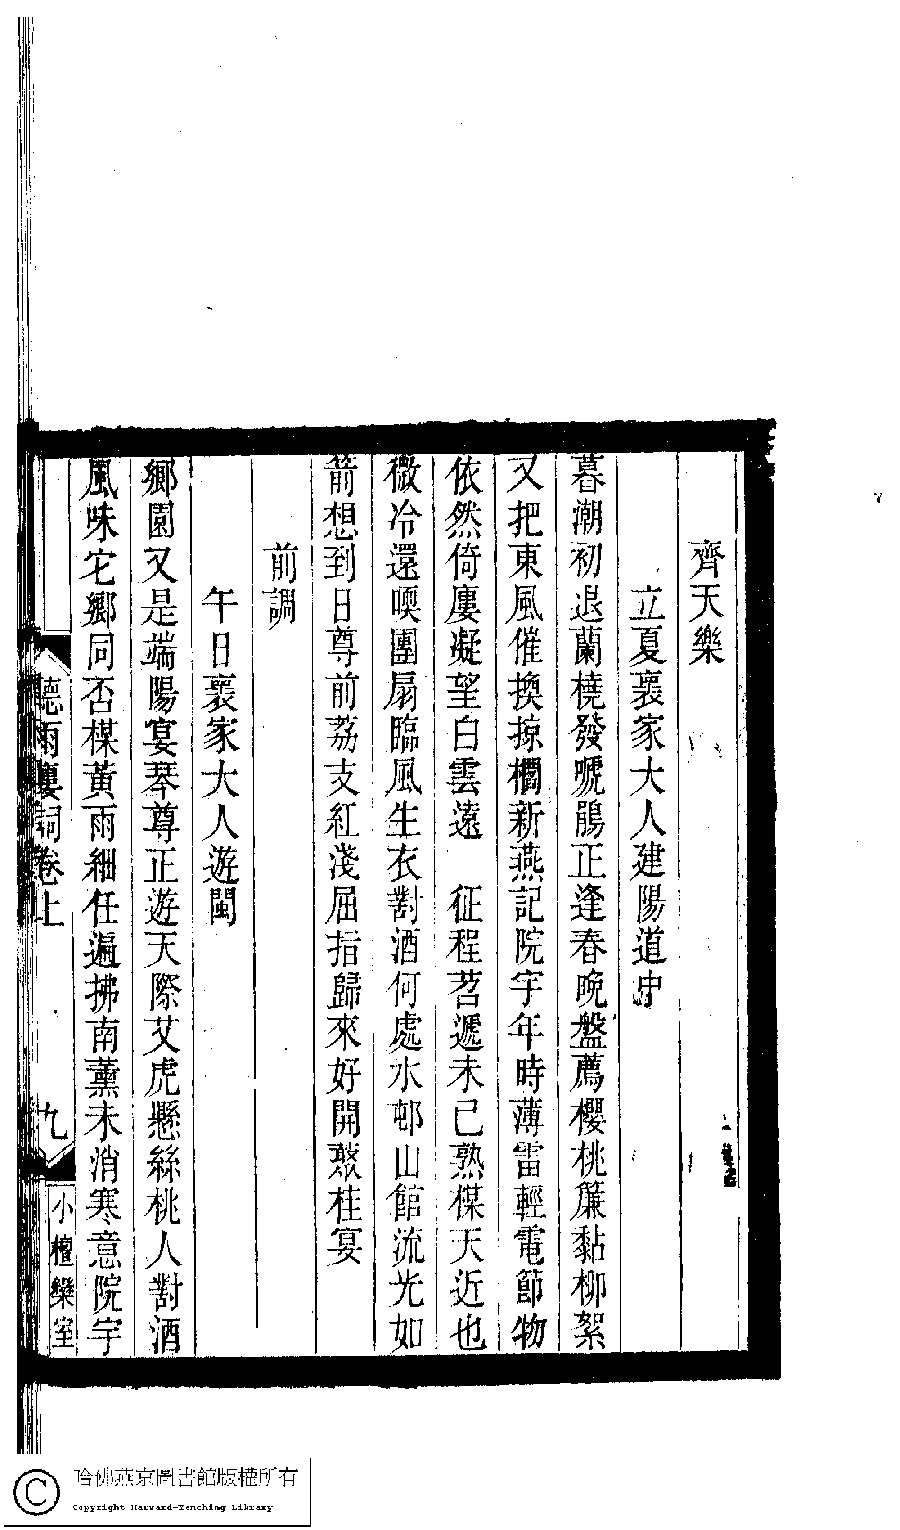 齊天樂
立夏褱家大人建陽道中
暮潮初退蘭橈發號鵑正逢春晚盤薦櫻桃簾黏柳絮
又把東風催換掠檻新燕記院宇年時薄雷輕電節物
依然倚廔凝望白雲遠　征程苕遞未已熟楳天近也
微冷還暝團扇臨風生衣對酒何處水邨山館流光如
箭想到日尊前荔支紅淺屈指歸來好開叢桂宴
前調
午日褱家大人遊閩
鄉園又是端陽宴琴尊正遊天際艾虎懸絲桃人對酒
風味它鄉同否楳黃雨細任遍拂南薰未消寒意院宇
聽雨廔詞卷上
九
小檀欒室
哈佛燕京圖書館版權所有
Copyright Harvard-Yenching Library